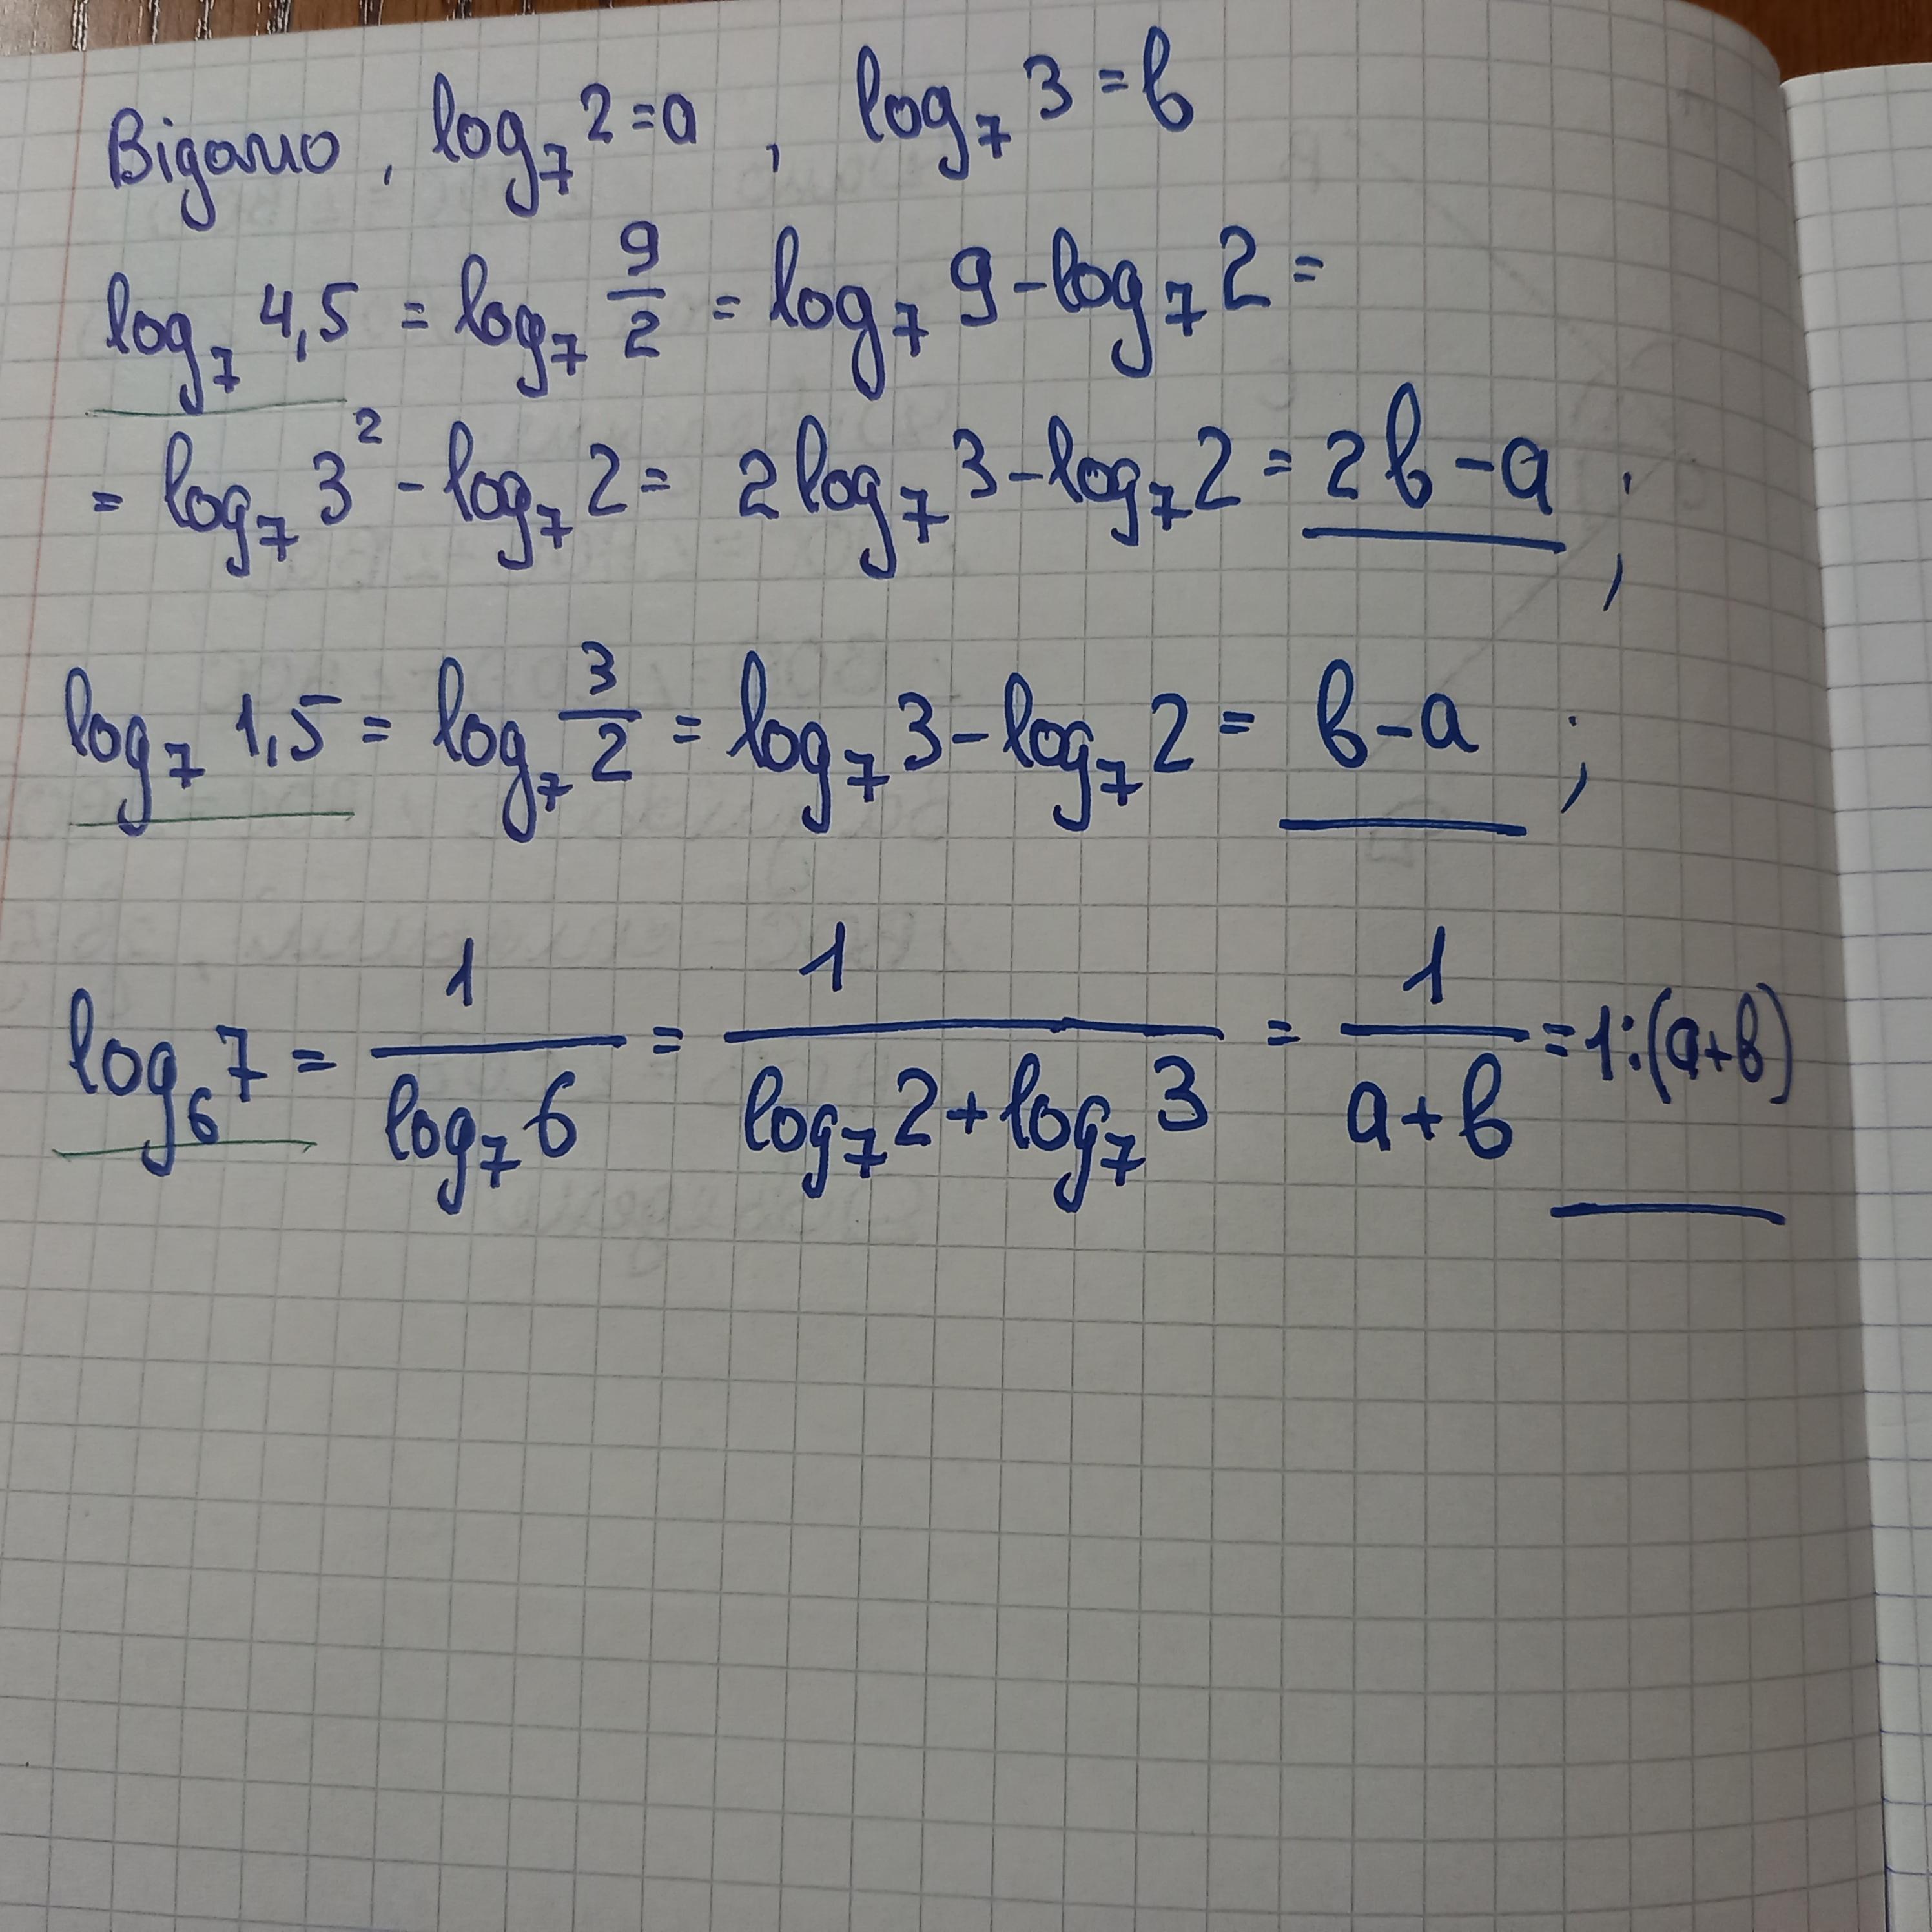 Відомо, log₇ 2 = a, log₇ 3 = b
log₇ 4,5 = log₇ 9/2 = log₇ 9 - log₇ 2 =
= log₇ 3² - log₇ 2 = 2 log₇ 3 - log₇ 2 = 2b - a ;
log₇ 1,5 = log₇ 3/2 = log₇ 3 - log₇ 2 = b - a ;
log₆ 7 = 1/(log₇ 6) = 1/(log₇ 2 + log₇ 3) = 1/(a + b) = 1:(a+b)